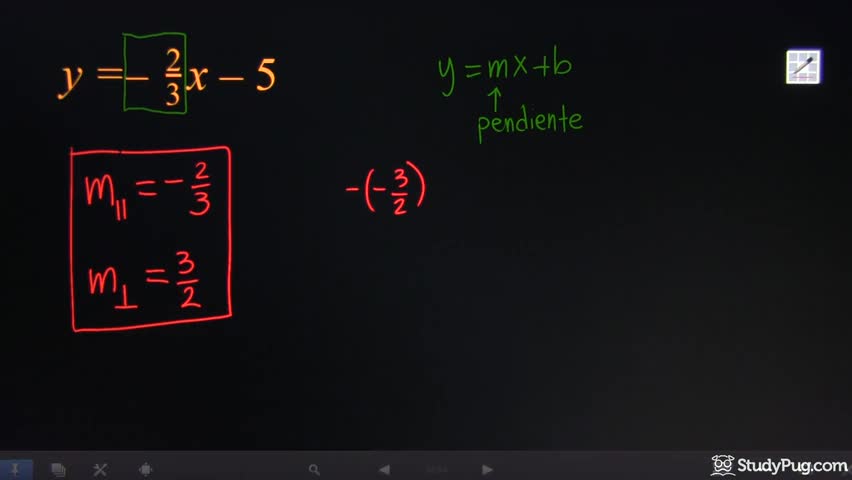 y = - 2/3 x - 5
y = mx + b
↑
pendiente
m∥ = - 2/3
-(- 3/2)
m⊥ = 3/2
StudyPug.com